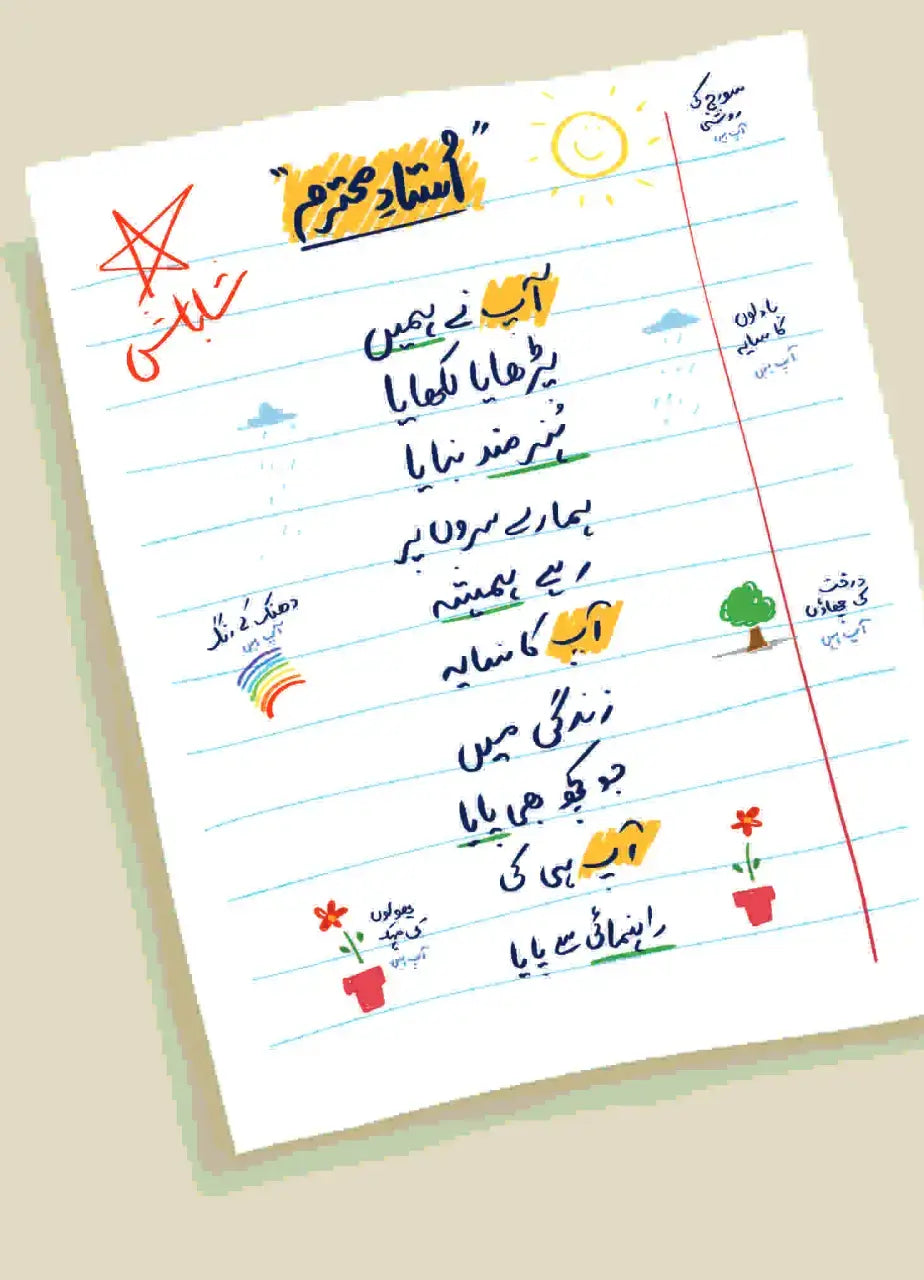 "اُستادِ محترم"
شاباش
آپ نے ہمیں
پڑھایا لکھایا
ہُنر مند بنایا
ہمارے سروں پر
رہے ہمیشہ
آپ کا سایہ
زندگی میں
جو کچھ بھی پایا
آپ ہی کی
راہنمائی سے پایا
سورج کی
روشنی
آپ ہیں
بادلوں
کا سایہ
آپ ہیں
درخت
کی چھاؤں
آپ ہیں
دھنک کے رنگ
آپ ہیں
پھولوں
کی مہک
آپ ہیں